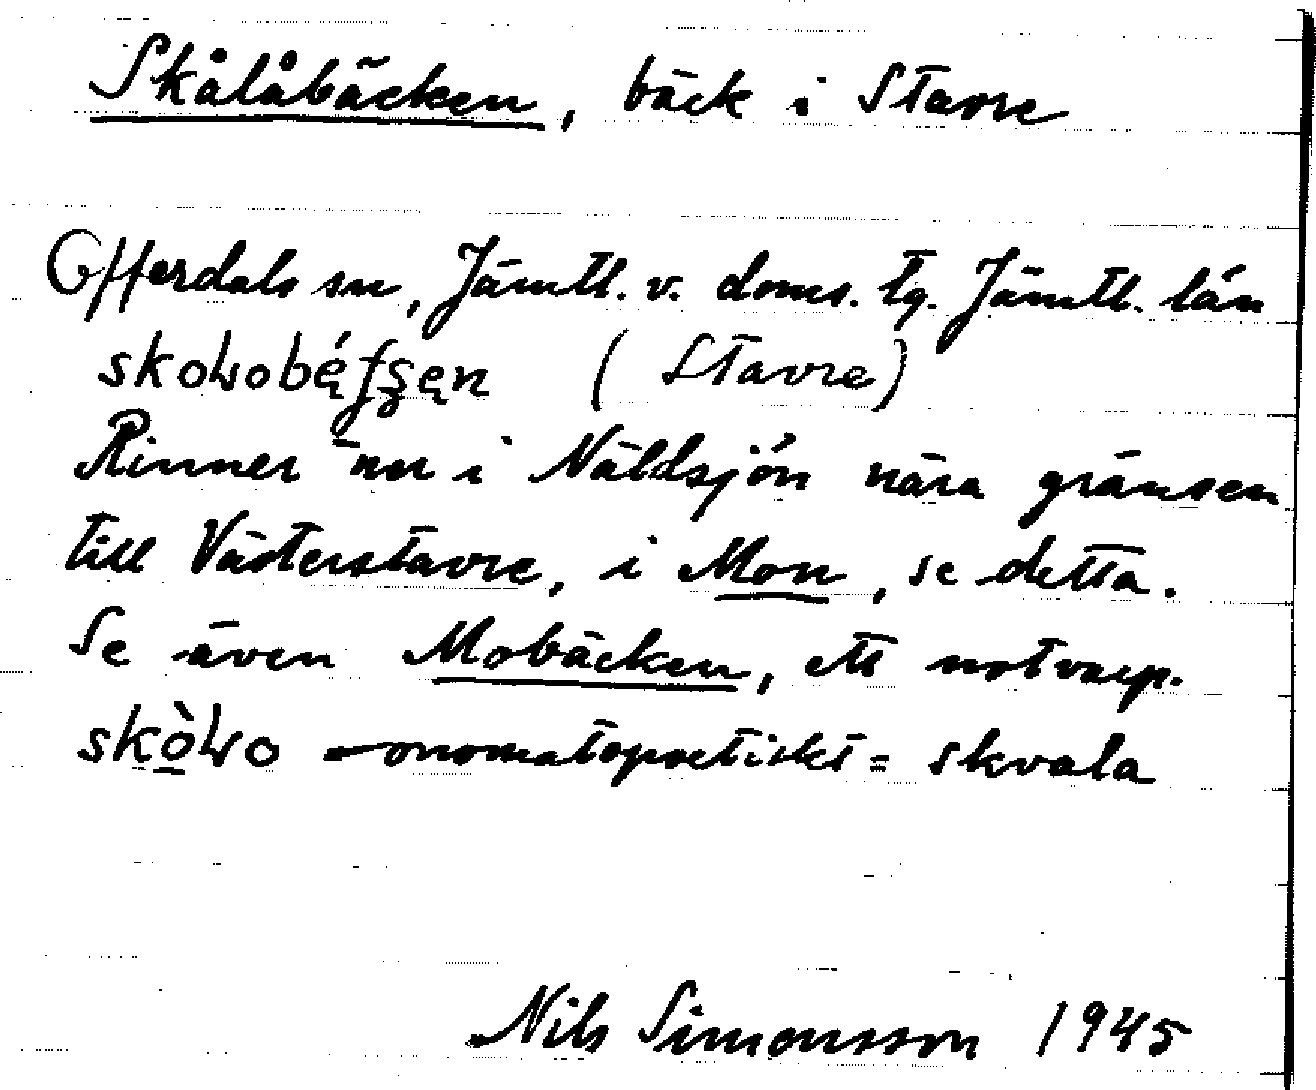 Skålåbäcken, bäck i Stavre
Offerdals sn, Jämtl. v. doms. tg. Jämtl. län
(Stavre)
Rinner nu i Näldsjön nära gränsen
till Västerstavre, i Mon, se detta.
Se även Mobäcken, ett notvarp.
onomatopoetiskt = skvala
Nils Simonsson 1945